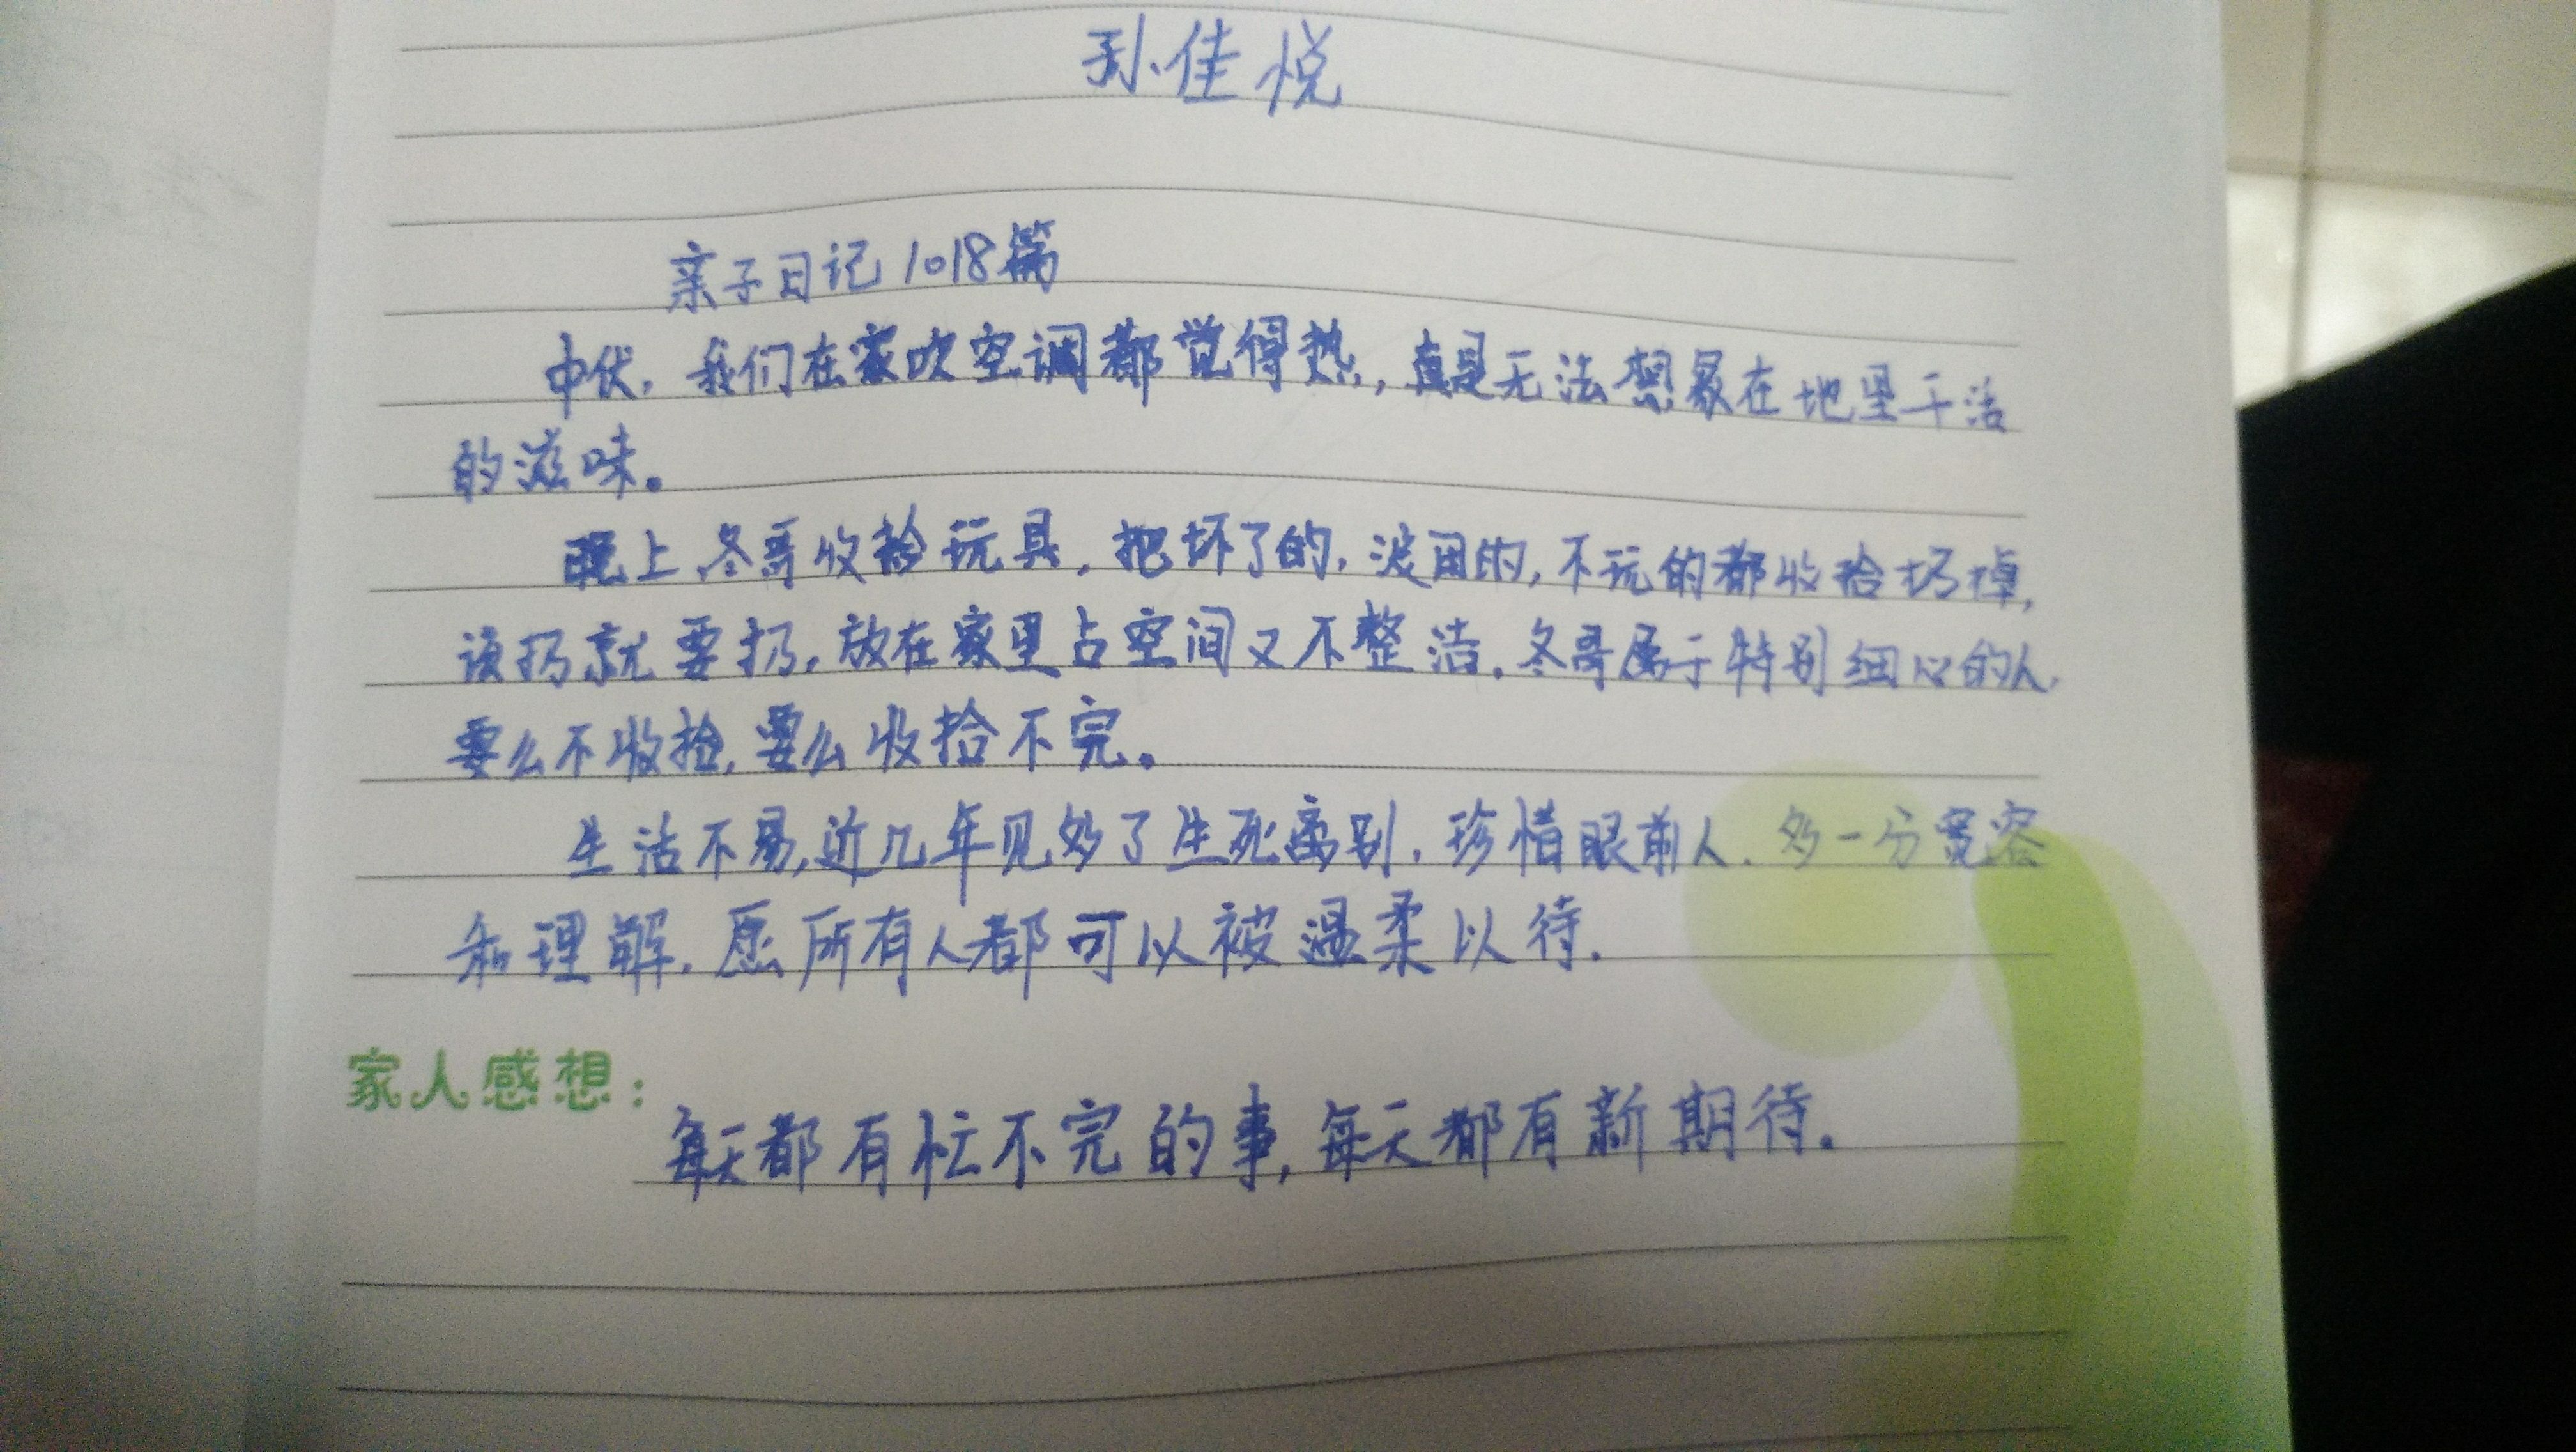 孙佳悦
亲子日记1018篇
中伏，我们在家吹空调都觉得热，真是无法想象在地里干活
的滋味。
晚上冬哥收拾玩具，把坏了的，没用的，不玩的都收拾扔掉，
该扔就要扔，放在家里占空间又不整洁。冬哥属于特别细心的人，
要么不收捡，要么收拾不完。
生活不易，近几年见多了生死离别，珍惜眼前人，多一分宽容
和理解，愿所有人都可以被温柔以待.
家人感想：
每天都有忙不完的事，每天都有新期待。